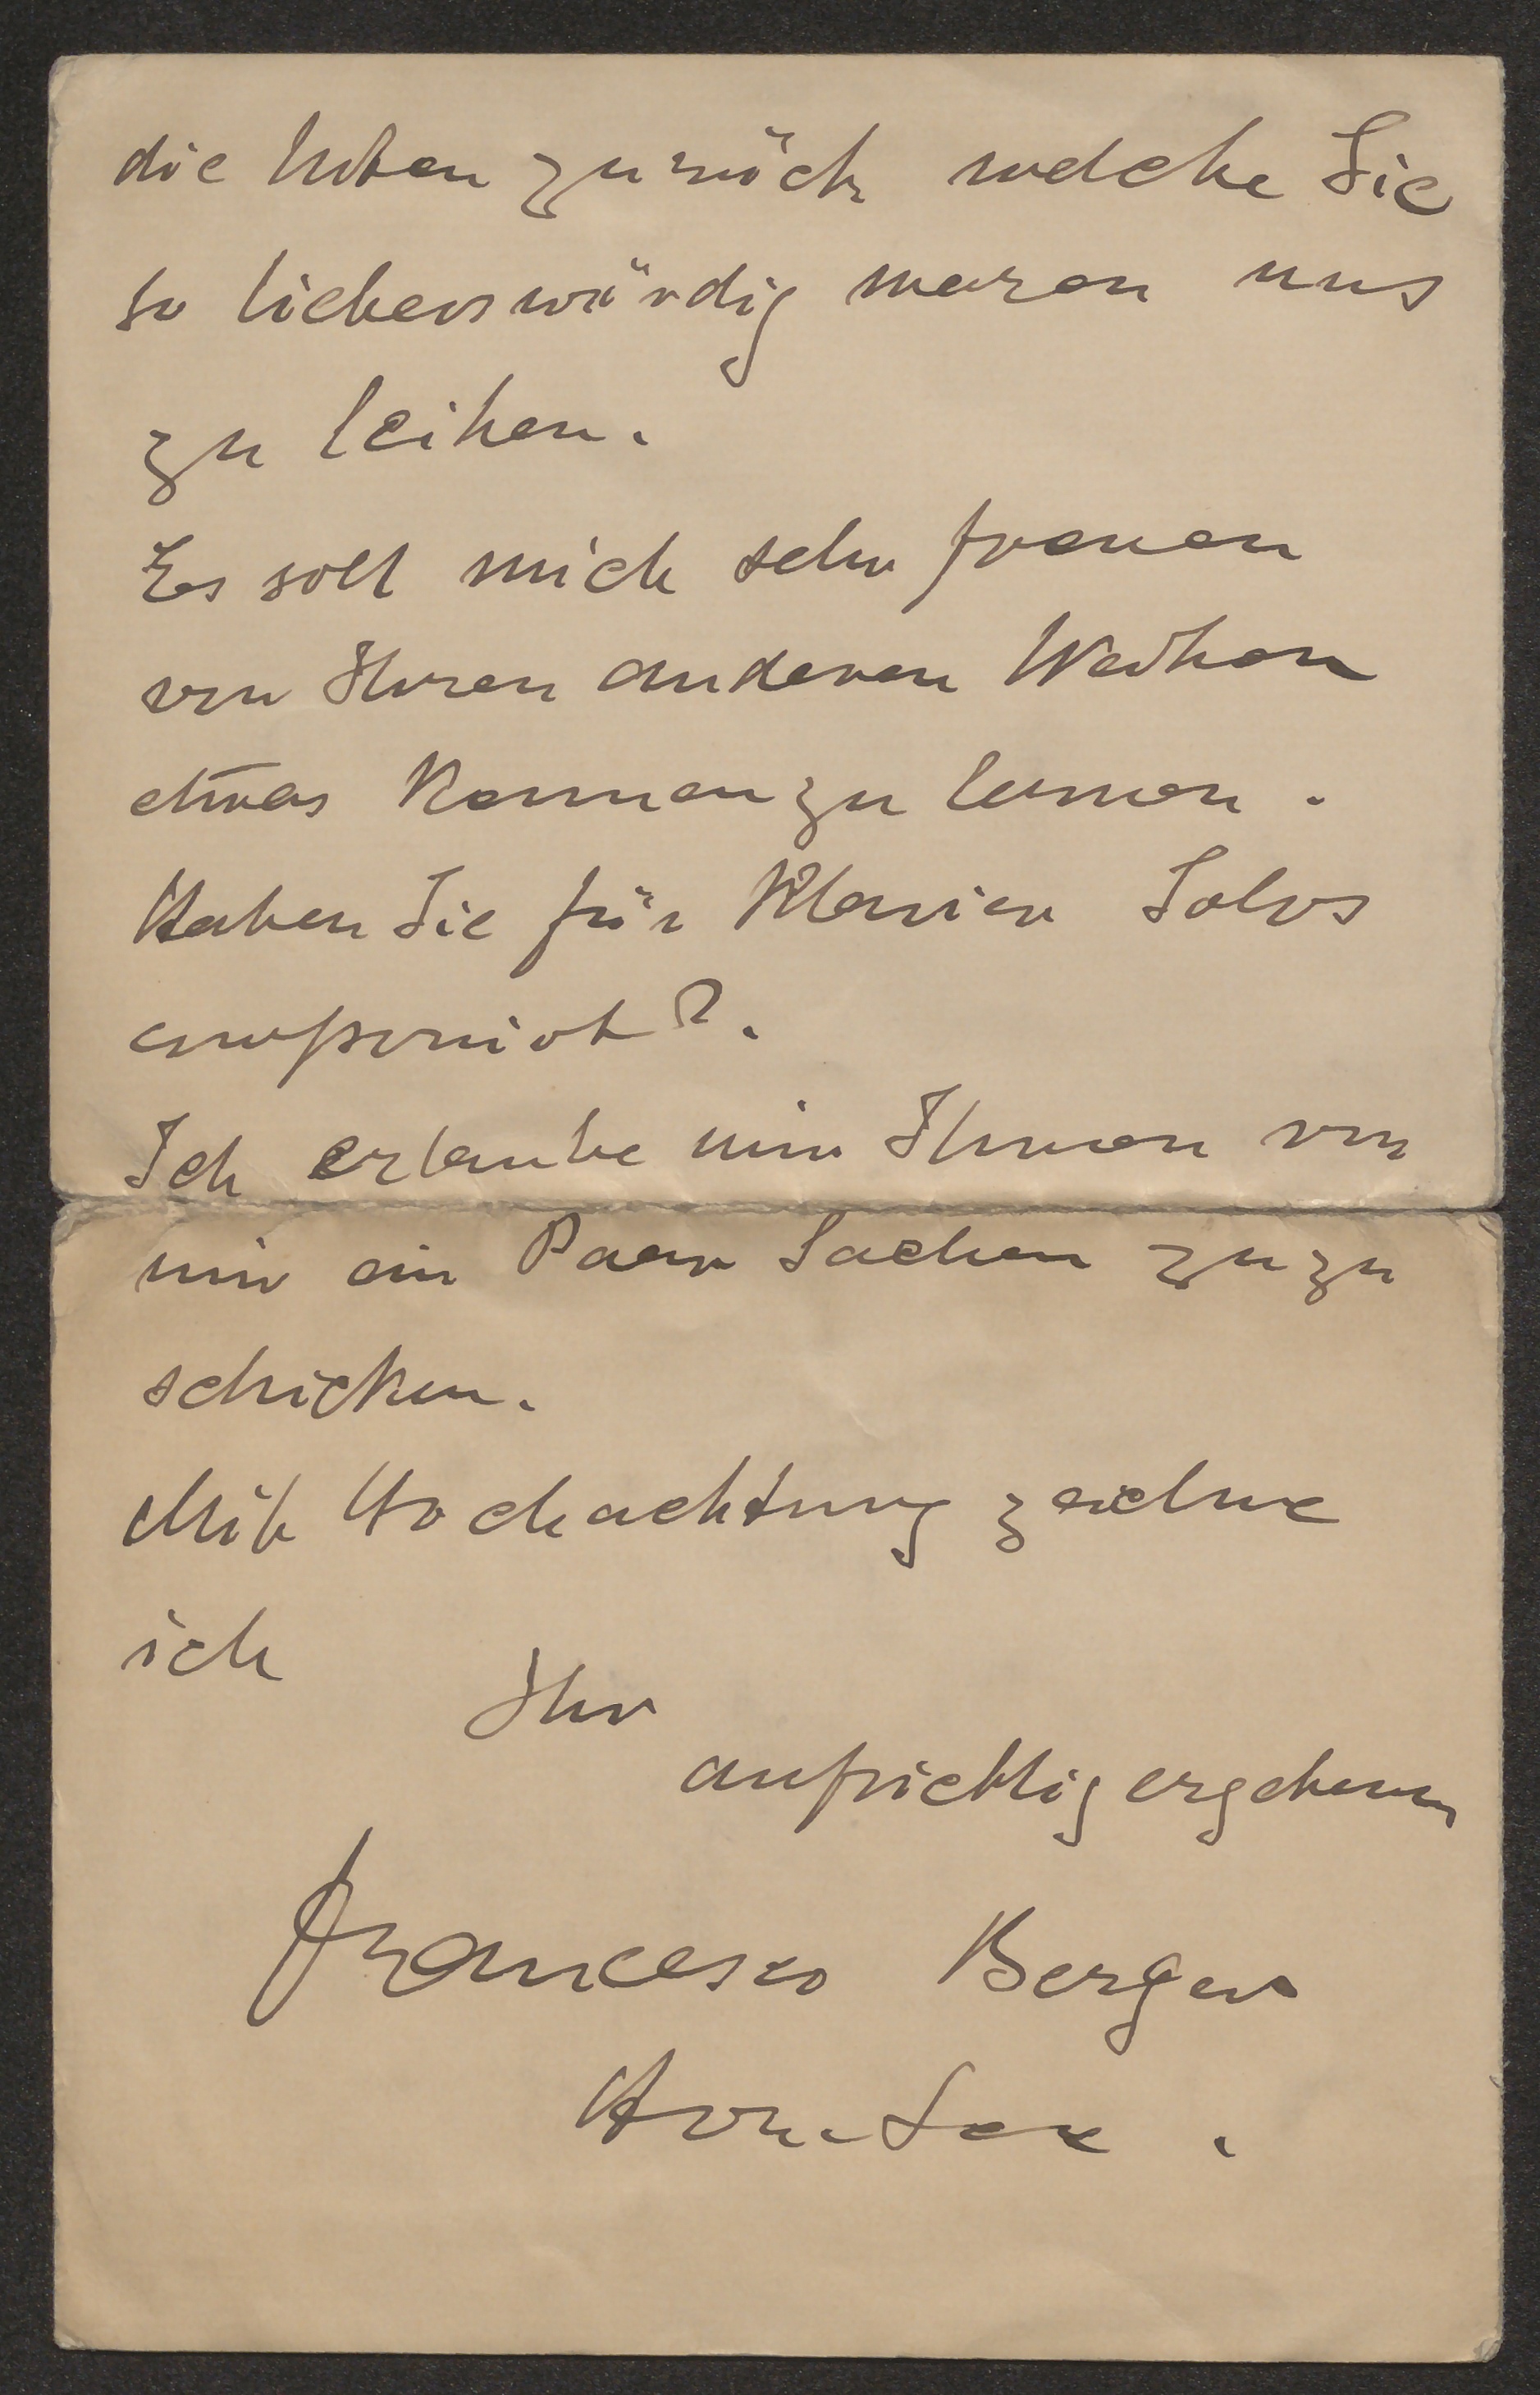 die Noten zurück welche Sie
so liebenswürdig waren uns
zu leihen.
Es soll mich sehr freuen
von Ihren anderen Werken
etwas kennen zu lernen.
Haben Sie für Klavier Solos
componirt?.
Ich erlaube mir Ihnen von
mir ein Paar Sachen zuzu
schicken.
Mit Hochachtung zeichne
ich
Ihr
aufrichtig ergebener
Francesco Berger
Hon. Sec.